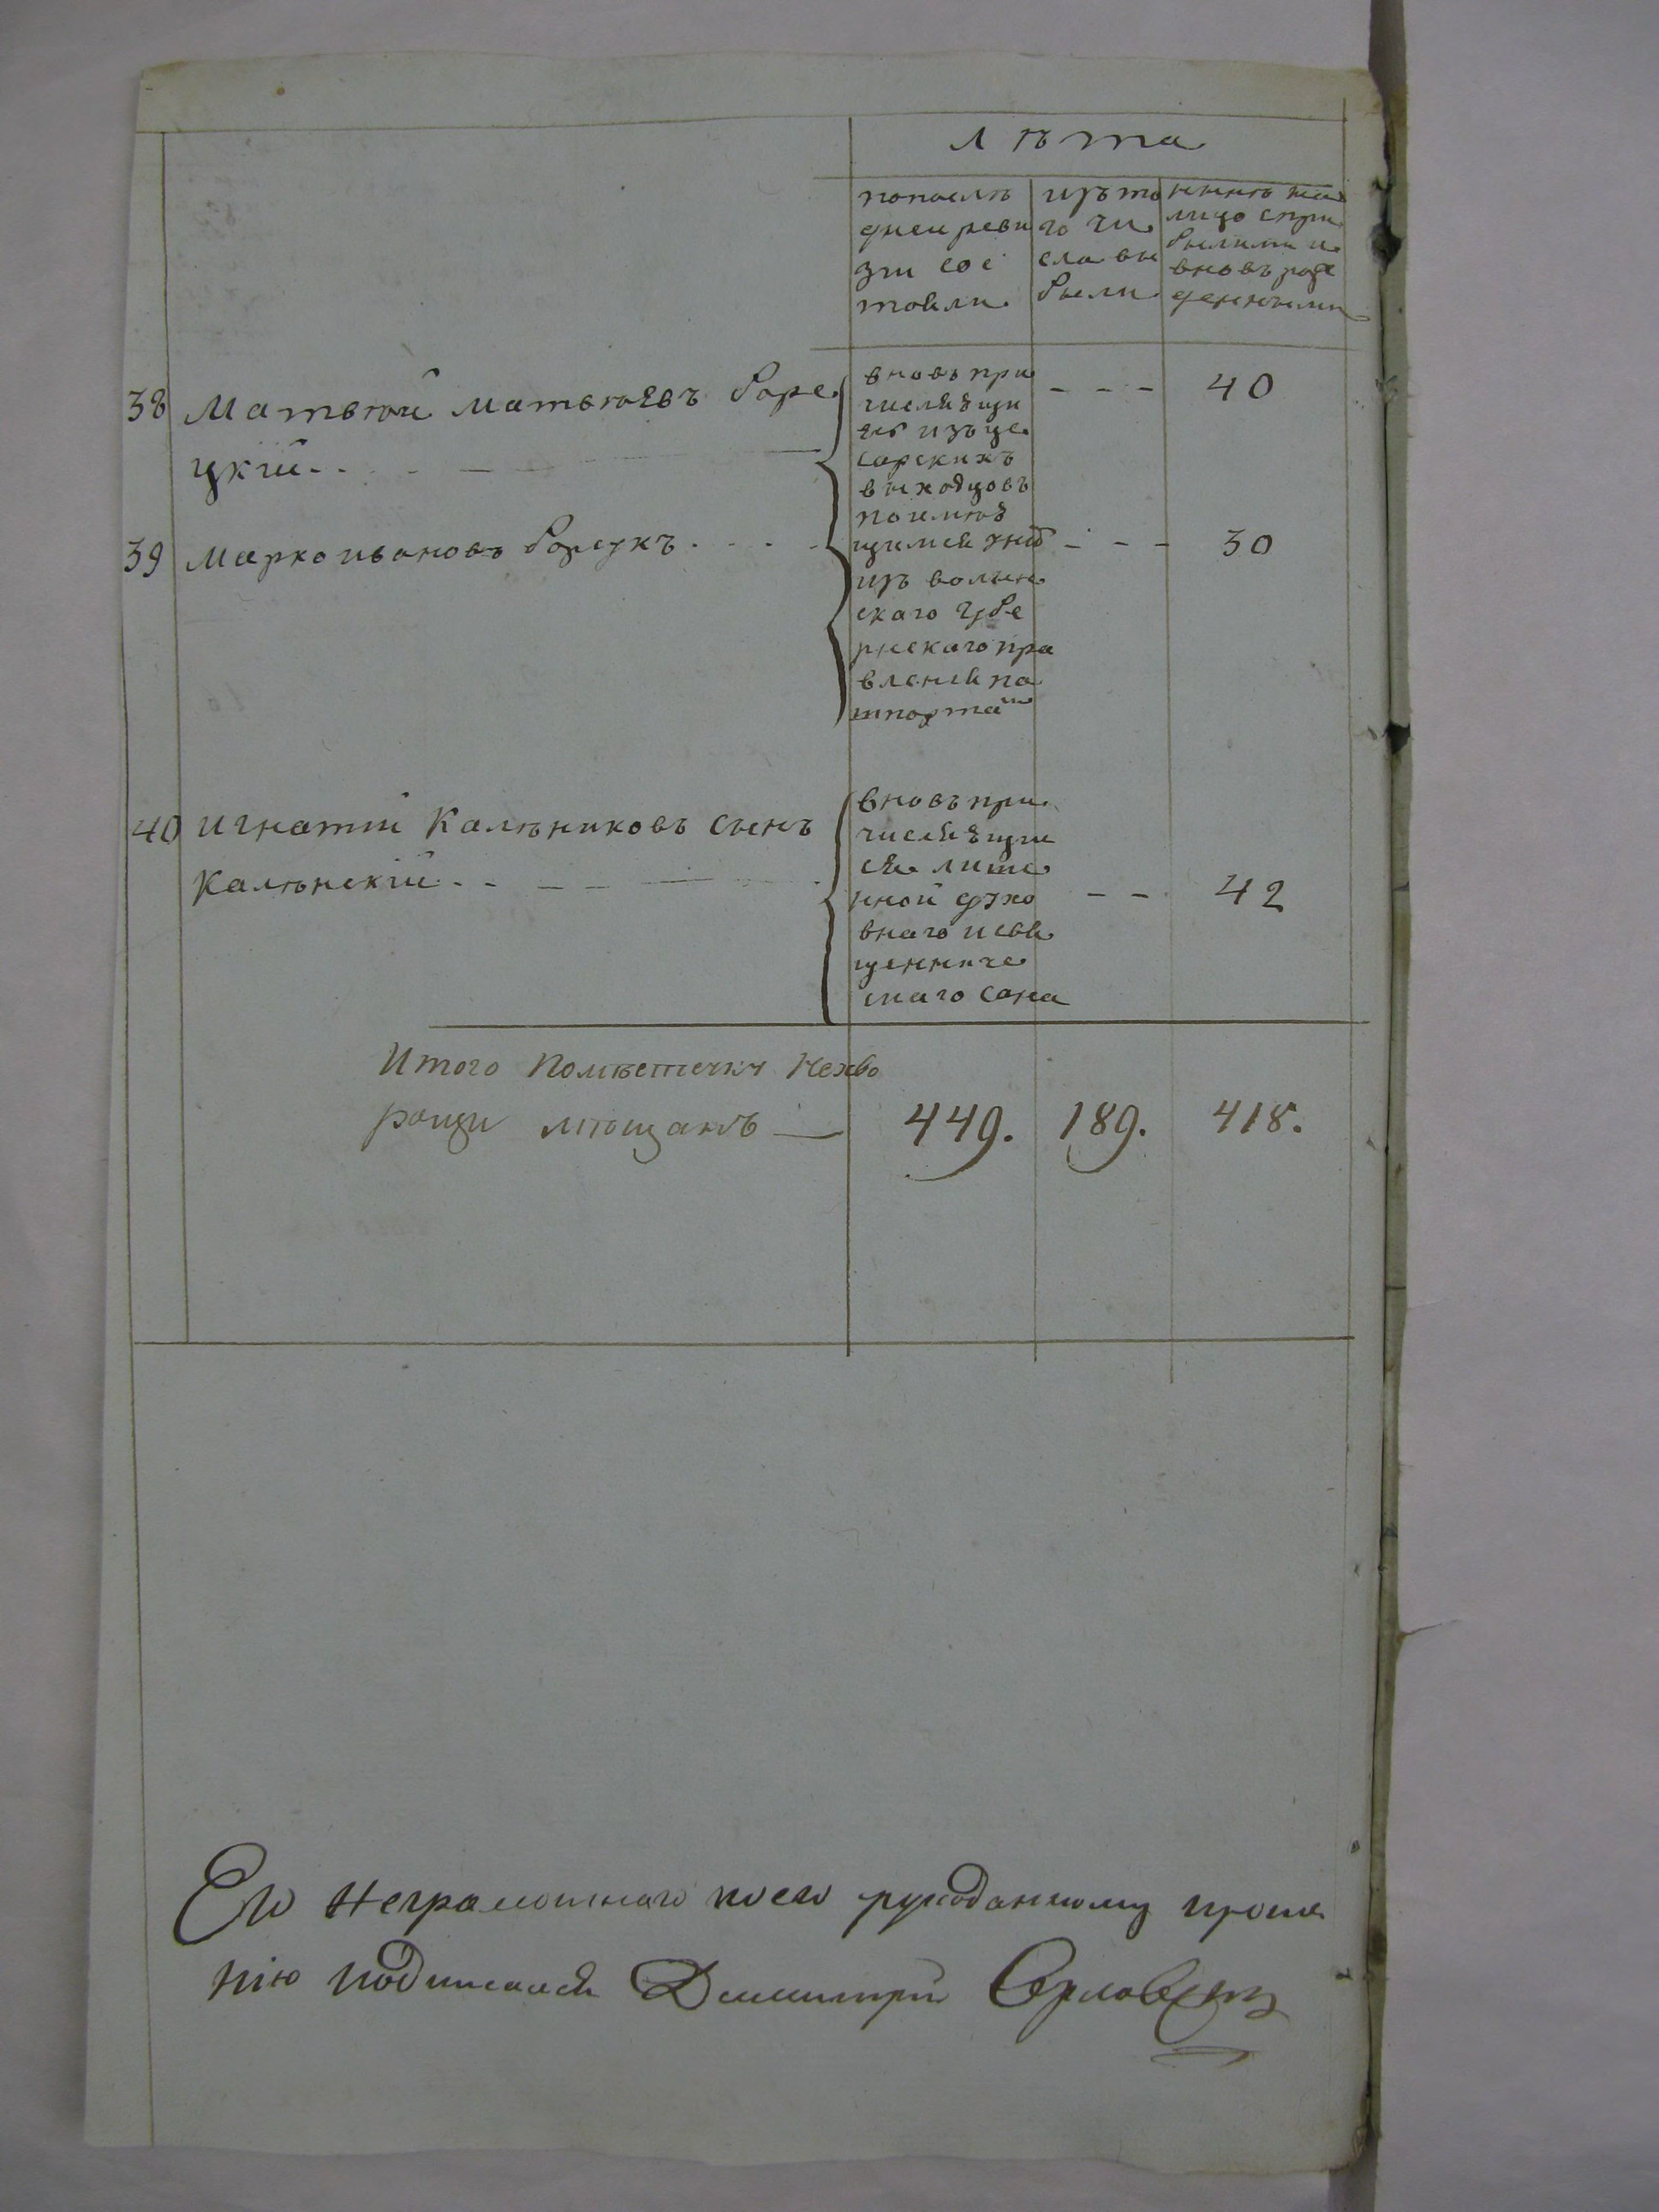 лѣта
попослѣ
дней реви
зіи сос
тояли
изъ то
го чи
сла вы
были
нынѣ на
лицо спри
былими и
вновь рож
денными
38 Матвѣй матвѣевъ боре
цкій
вновь при
числявши
еся изъ це
сарскихъ
выходцовъ
поимѣв
щимся
изъ волын
скаго губе
рнскаго пра
вленія па
шпорта
40
39 Марко ивановъ
30
40 игнатій Калѣниковъ сынъ
Калѣнскій
вновь при
числявши
ся лише
нной духо
внаго исвя
щенниче
скаго сана
42
Итого Помѣстечку Нехво
рощи мѣщанъ
449. 189. 418.
Его Неграмотнаго поего рукоданному проше
нію подписался Димитрій